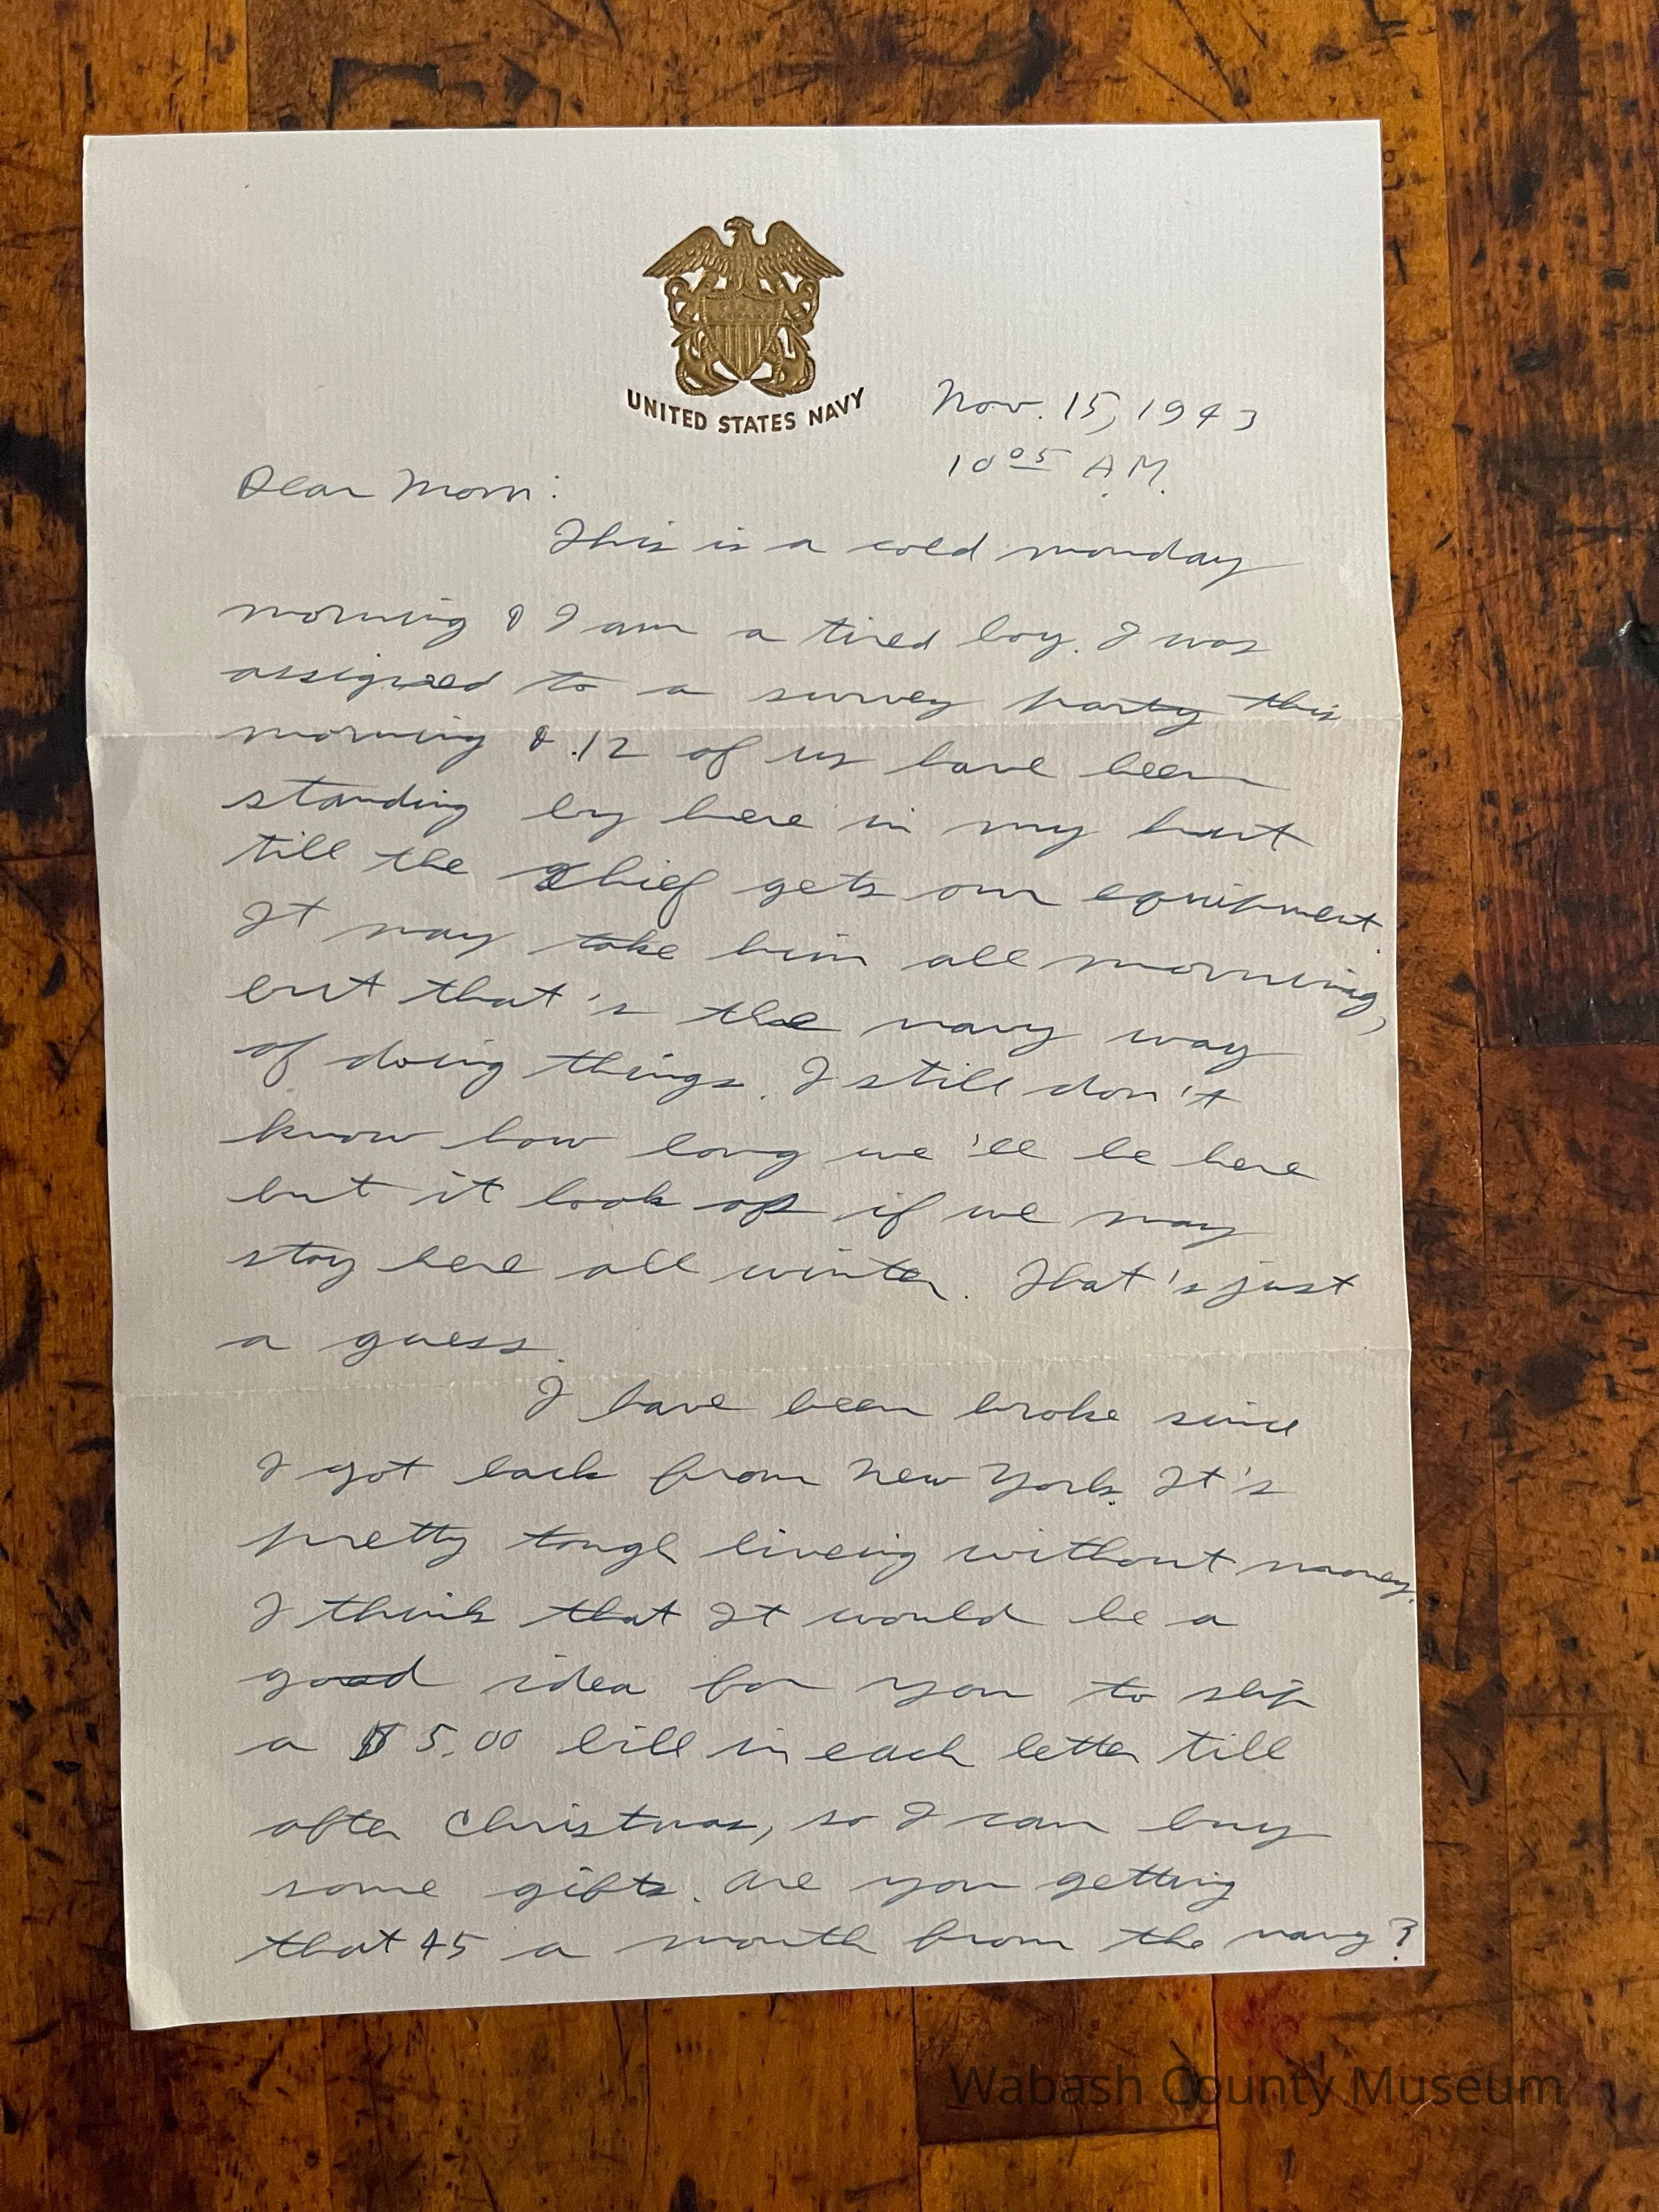 UNITED STATES NAVY
Nov. 15, 1943
10 05 A.M.
Dear Mom:
This is a cold monday
morning & I am a tired boy. I was
assigned to a survey party this
morning & 12 of us have been
standing by here in my hut
till the Chief gets our equipment.
It may take him all morning,
but that's the navy way
of doing things. I still don't
know how long we'll be here
but it look as if we may
stay here all winter. That's just
a guess.
I have been broke since
I got back from New York. It's
pretty tough liveing without money.
I think that It would be a
good idea for you to slip
a $5.00 bill in each letter till
after Christmas, so I can buy
some gifts. Are you getting
that 45 a month from the navy?
Wabash County Museum